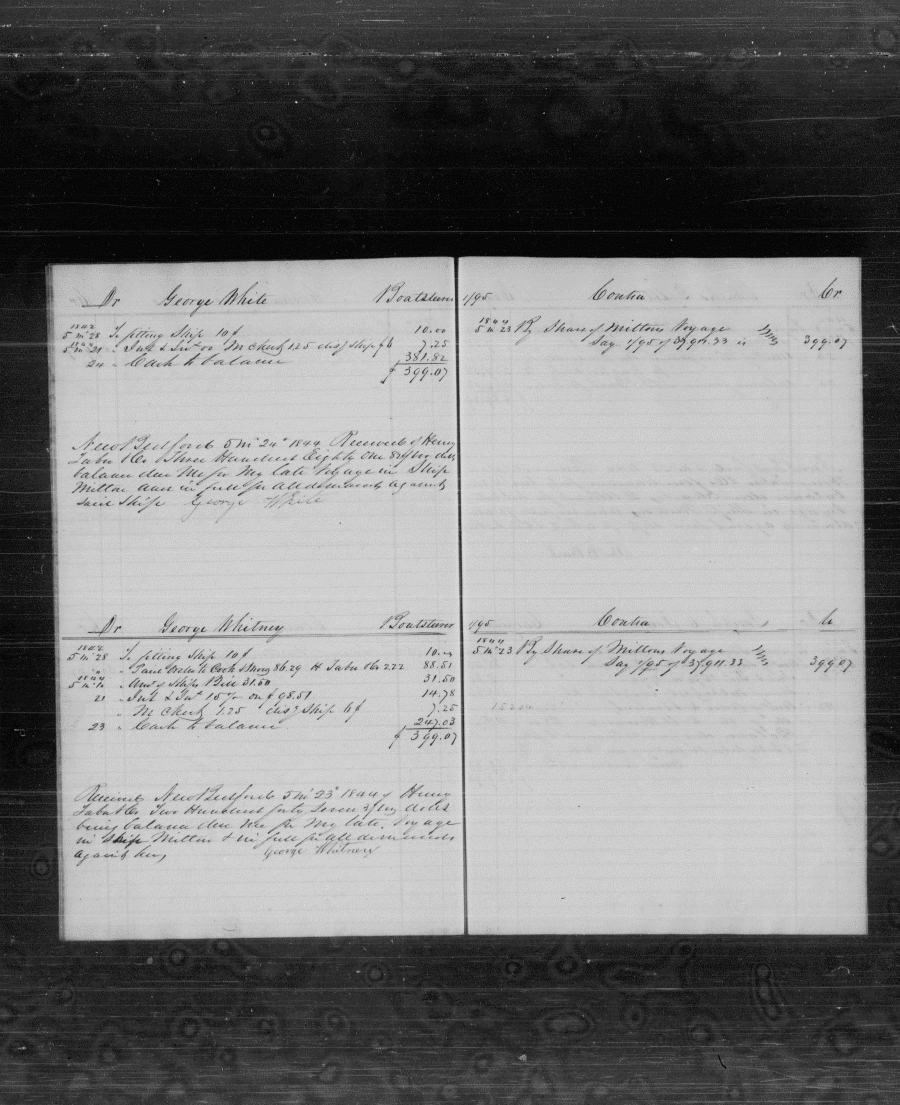 Dr George White Boatsteerer 1/95
1842
5 mo 28 To fitting Ship 10$ 10.00
1844
5 mo 21 " Int & Ins on M Chest 1.25 disg Ship $6 7.25
24 " Cash to balance 381.82
$ 399.07
New Bedford 5 mo 24th 1844 Received of Henry
Taber & Co Three Hundred Eighty One 82/100 dolls
balance due Me for My late Voyage in Ship
Milton and in full for all demands against
said Ship George White
Dr George Whitney Boatsteerer 1/95
1842
5 mo 28 To fitting Ship 10$ 10.00
" Cook & 86.29 H Taber & Co 2.22 88.51
1844
5 mo " Am't of Ships Bill 31.50 31.50
21 " Int & Ins 15 % on $98.51 14.78
" M Chest 1.25 disg Ship 6$ 7.25
23 " Cash to balance 247.03
$ 399.07
Received New Bedford 5 mo 23d 1844 of Henry
Taber & Co Two Hundred forty Seven 3/100 dolls
being balance due Me for My late Voyage
in Ship Milton & in full for all demands
against her, George Whitney
Contra Cr
1844
5 mo 23 By Share of Miltons Voyage
Say 1/95 of 37,911.33 is 399.07
Contra Cr
1844
5 mo 23 By Share of Miltons Voyage
Say 1/95 of 37,911.33 399.07